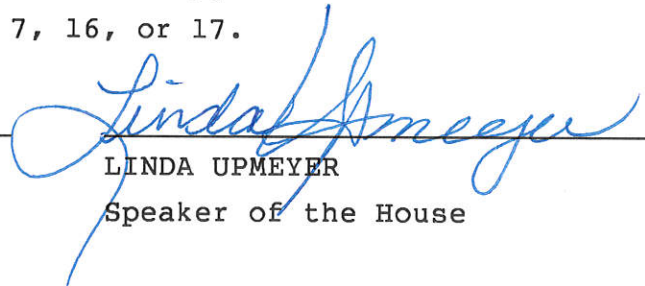 7, 16, or 17.
Linda Upmeyer
LINDA UPMEYER
Speaker of the House